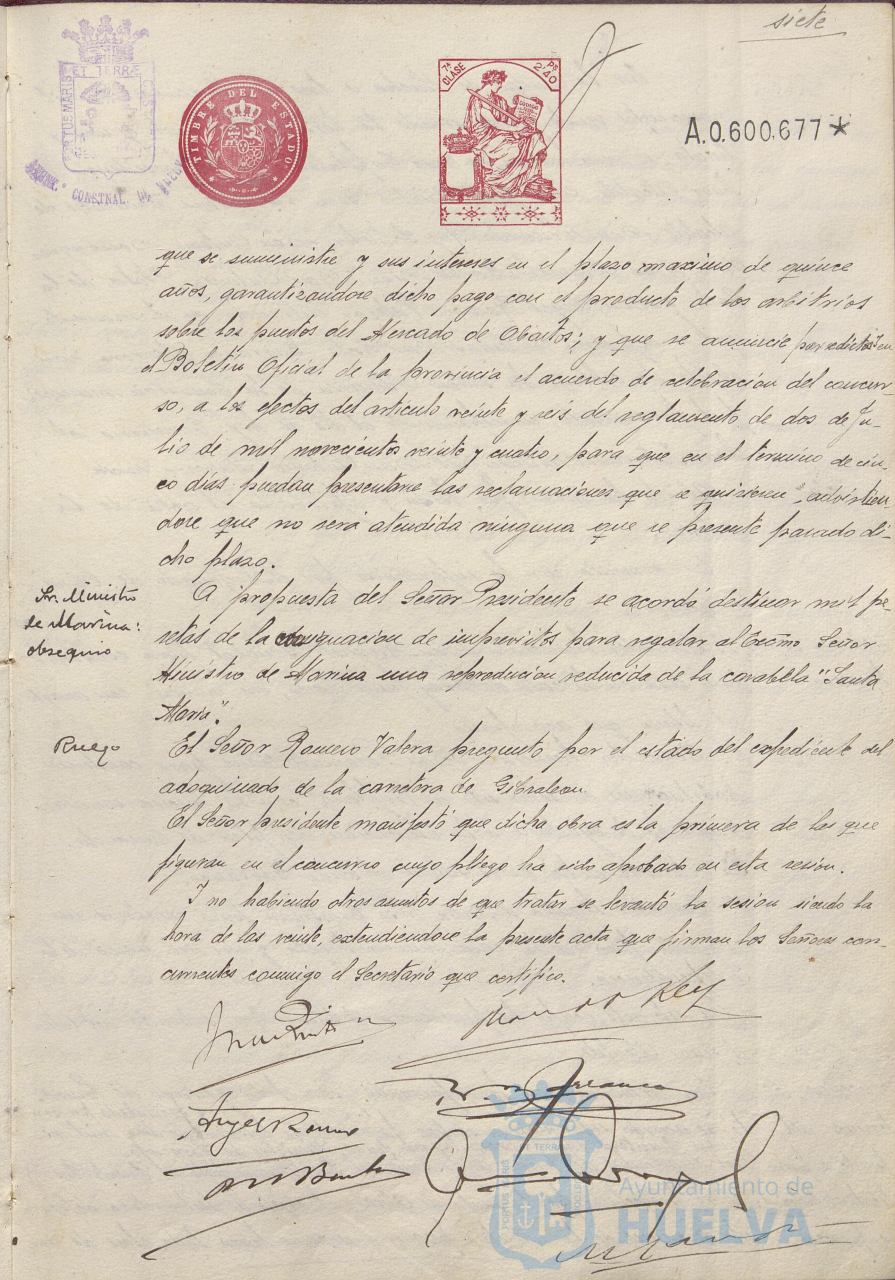 siete
ET TERRÆ
PORTUS MARIS
CONSTNAL. DE
TIMBRE DEL ESTADO
7ª CLASE
PS 2'40
A.0.600,677*
que se suministre y sus intereses en el plazo maximo de quince
años, garantizandose dicho pago con el producto de los arbitrios
sobre los puestos del Mercado de Abastos; y que se anuncie por edictos en
el Boletín Oficial de la provincia el acuerdo de celebracion del concur-
so, a los efectos del articulo veinte y seis del reglamento de dos de Ju-
lio de mil novecientos veinte y cuatro, para que en el termino de cin-
co días puedan presentarse las reclamaciones que se quisieren, advirtien
dose que no será atendida ninguna que se presente pasado di-
cho plazo.
Sr. Ministro
de Marina:
obsequio
A propuesta del Señor Presidente se acordó destinar mil pe-
setas de la consignacion de imprevistos para regalar al Excmo Señor
Ministro de Marina una reproducion reducida de la carabela "Santa
Maria".
Ruego
El Señor Romero Valera pregunto por el estado del expediente del
adoquinado de la carretera de Gibraleon.
El Señor presidente manifestó que dicha obra es la primera de las que
figuran en el concurso cuyo pliego ha sido aprobado en esta sesion.
Y no habiendo otros asuntos de que tratar se levantó la sesion siendo la
hora de las veinte, extendiendose la presente acta que firman los Señores con-
currentes conmigo el Secretario que certifico.
Angel Romero
PORTUS MARIS ET TERRÆ CUSTODIA
Ayuntamiento de
HUELVA